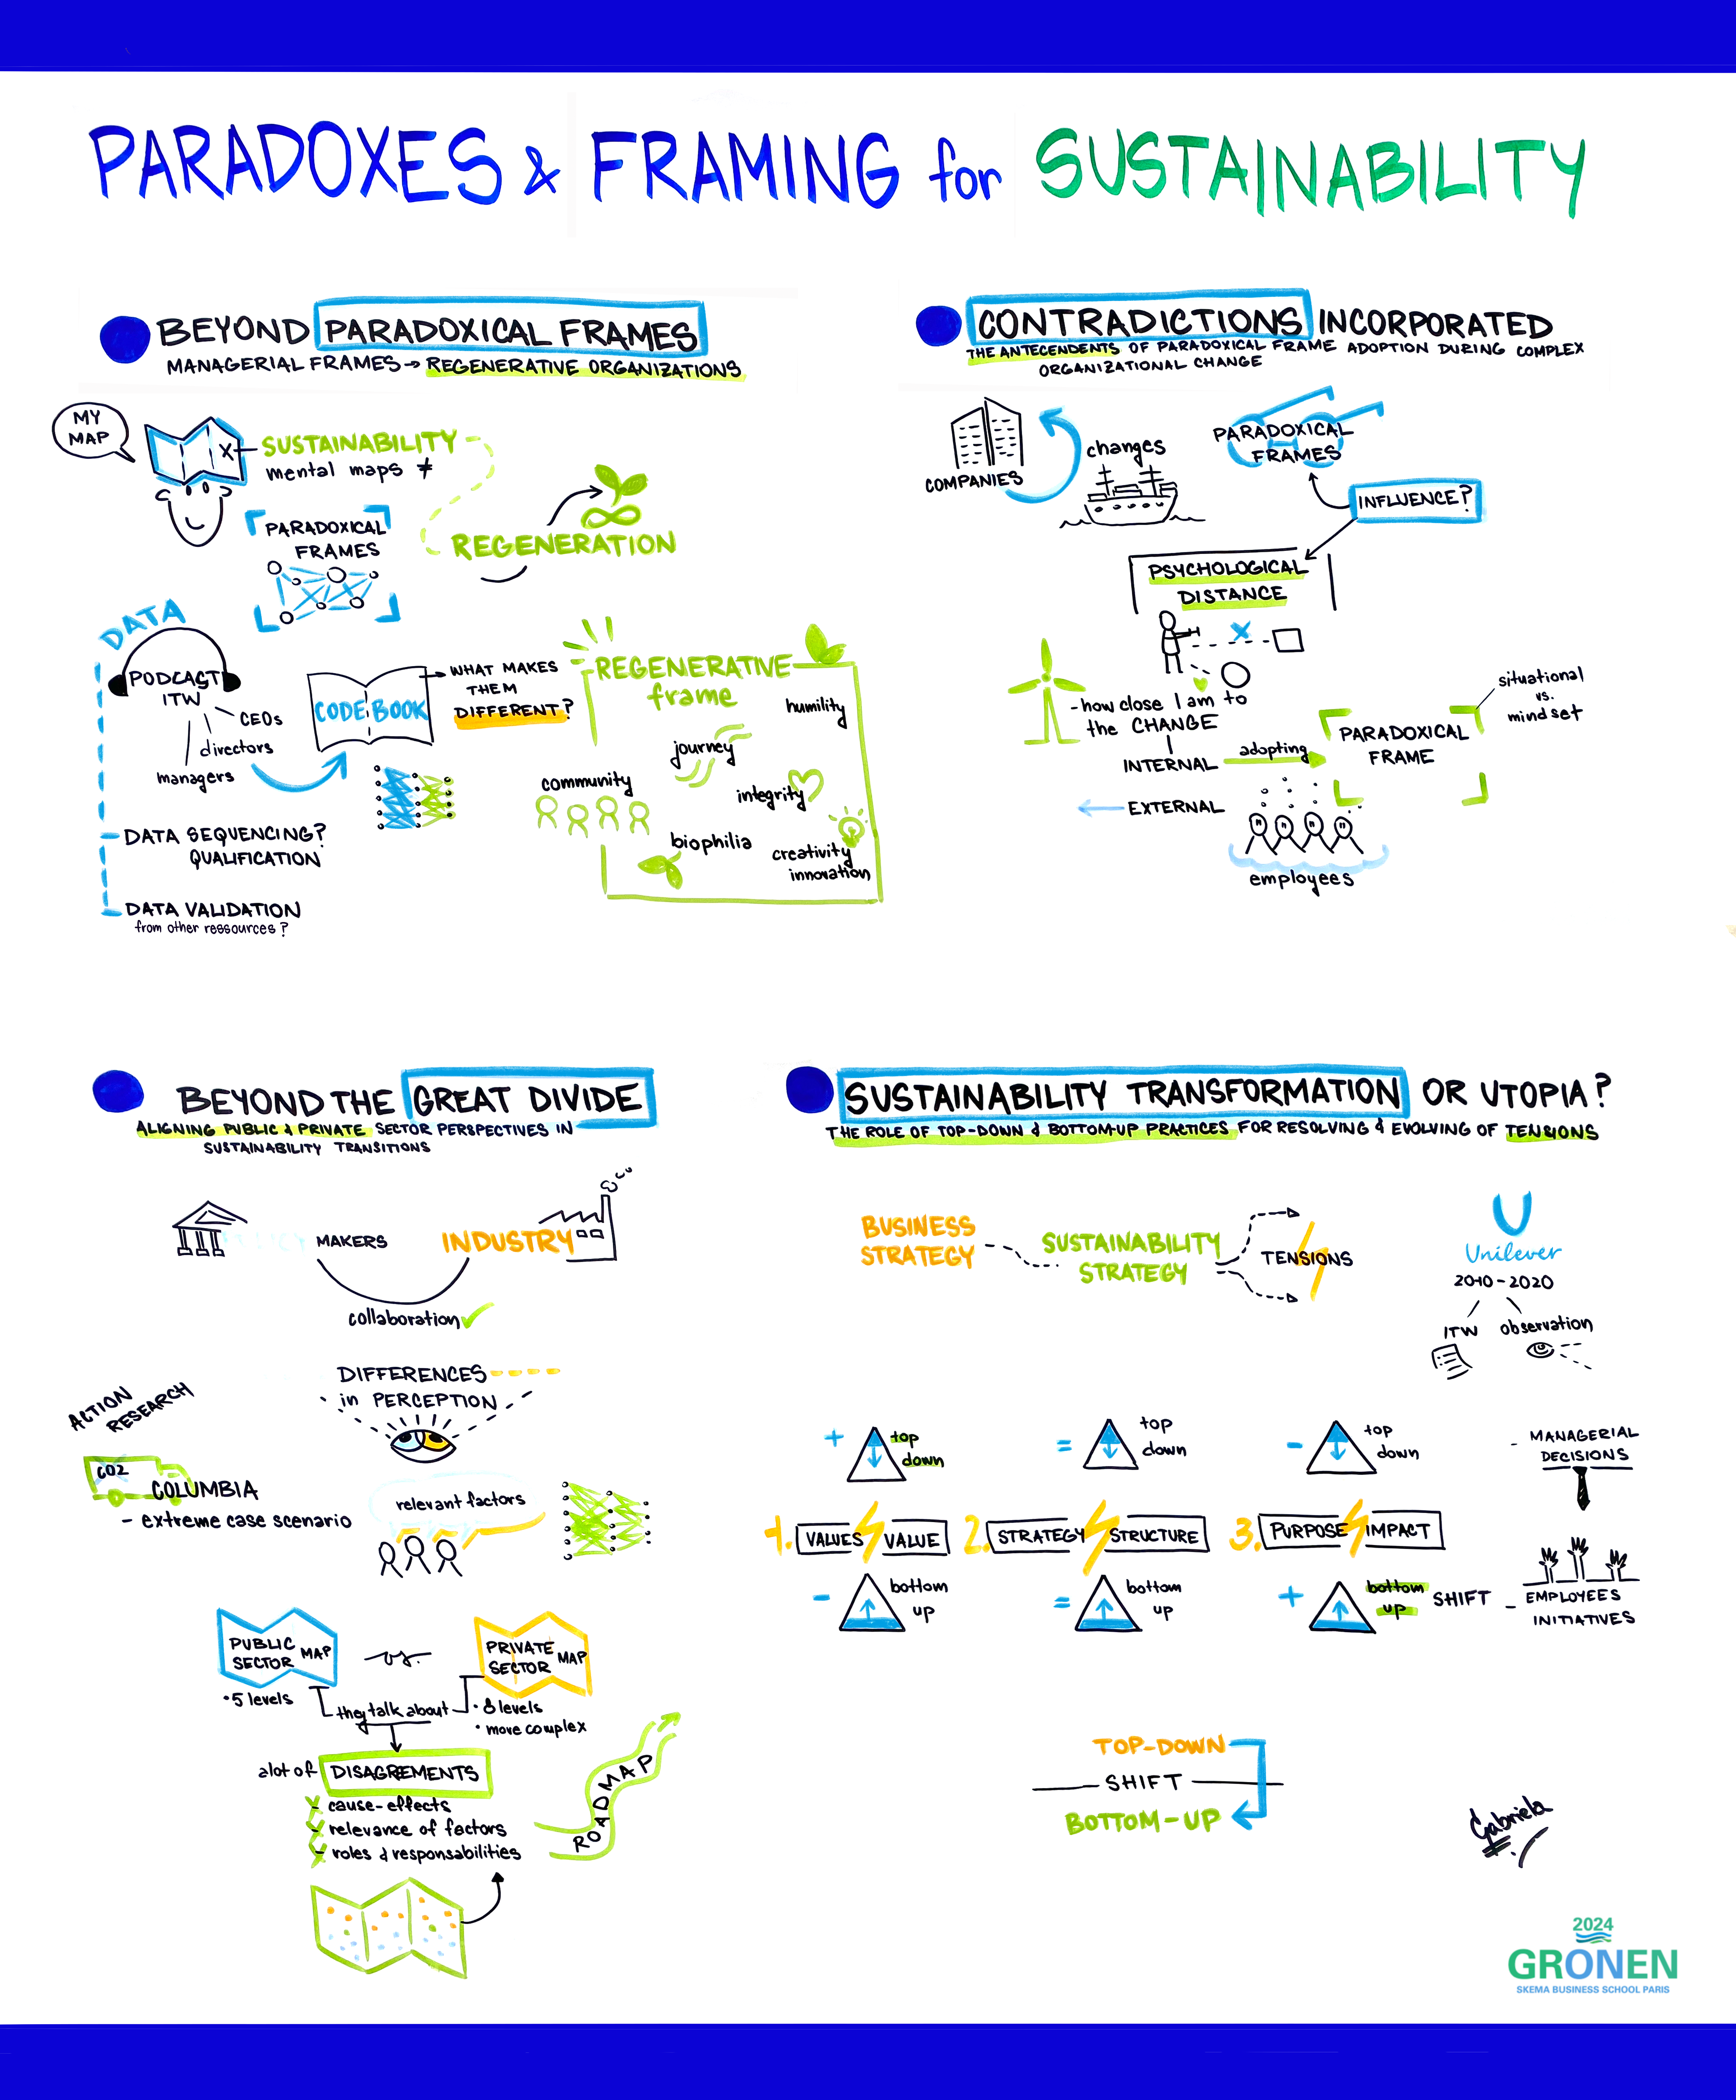 PARADOXES & FRAMING for SUSTAINABILITY
BEYOND PARADOXICAL FRAMES
MANAGERIAL FRAMES → REGENERATIVE ORGANIZATIONS
MY
MAP
X
SUSTAINABILITY
mental maps ≠
PARADOXICAL
FRAMES
REGENERATION
DATA
PODCAST
ITW
CEOs
directors
managers
CODE BOOK
WHAT MAKES
THEM
DIFFERENT?
DATA SEQUENCING?
QUALIFICATION
DATA VALIDATION
from other ressources?
REGENERATIVE
frame
humility
journey
community
integrity
biophilia
creativity
innovation
CONTRADICTIONS INCORPORATED
THE ANTECENDENTS OF PARADOXICAL FRAME ADOPTION DURING COMPLEX
ORGANIZATIONAL CHANGE
COMPANIES
changes
PARADOXICAL
FRAMES
INFLUENCE?
PSYCHOLOGICAL
DISTANCE
- how close I am to
the CHANGE
INTERNAL
adopting
EXTERNAL
PARADOXICAL
FRAME
situational
vs.
mindset
employees
BEYOND THE GREAT DIVIDE
ALIGNING PUBLIC & PRIVATE SECTOR PERSPECTIVES IN
SUSTAINABILITY TRANSITIONS
MAKERS
INDUSTRY
collaboration
DIFFERENCES
in PERCEPTION
ACTION
RESEARCH
CO2
COLUMBIA
- extreme case scenario
relevant factors
PUBLIC
SECTOR MAP
vs.
PRIVATE
SECTOR MAP
• 5 levels
they talk about
• 8 levels
• move complex
alot of DISAGREMENTS
- cause-effects
- relevance of factors
- roles & responsabilities
ROADMAP
SUSTAINABILITY TRANSFORMATION OR UTOPIA?
THE ROLE OF TOP-DOWN & BOTTOM-UP PRACTICES FOR RESOLVING & EVOLVING OF TENSIONS
BUSINESS
STRATEGY
SUSTAINABILITY
STRATEGY
TENSIONS
U
Unilever
2010-2020
ITW
observation
+ top
down
= top
down
- top
down
- MANAGERIAL
DECISIONS
1. VALUES VALUE
2. STRATEGY STRUCTURE
3. PURPOSE IMPACT
- bottom
up
= bottom
up
+ bottom
up
SHIFT
- EMPLOYEES
INITIATIVES
TOP-DOWN
SHIFT
BOTTOM-UP
Gabriela
2024
GRONEN
SKEMA BUSINESS SCHOOL PARIS